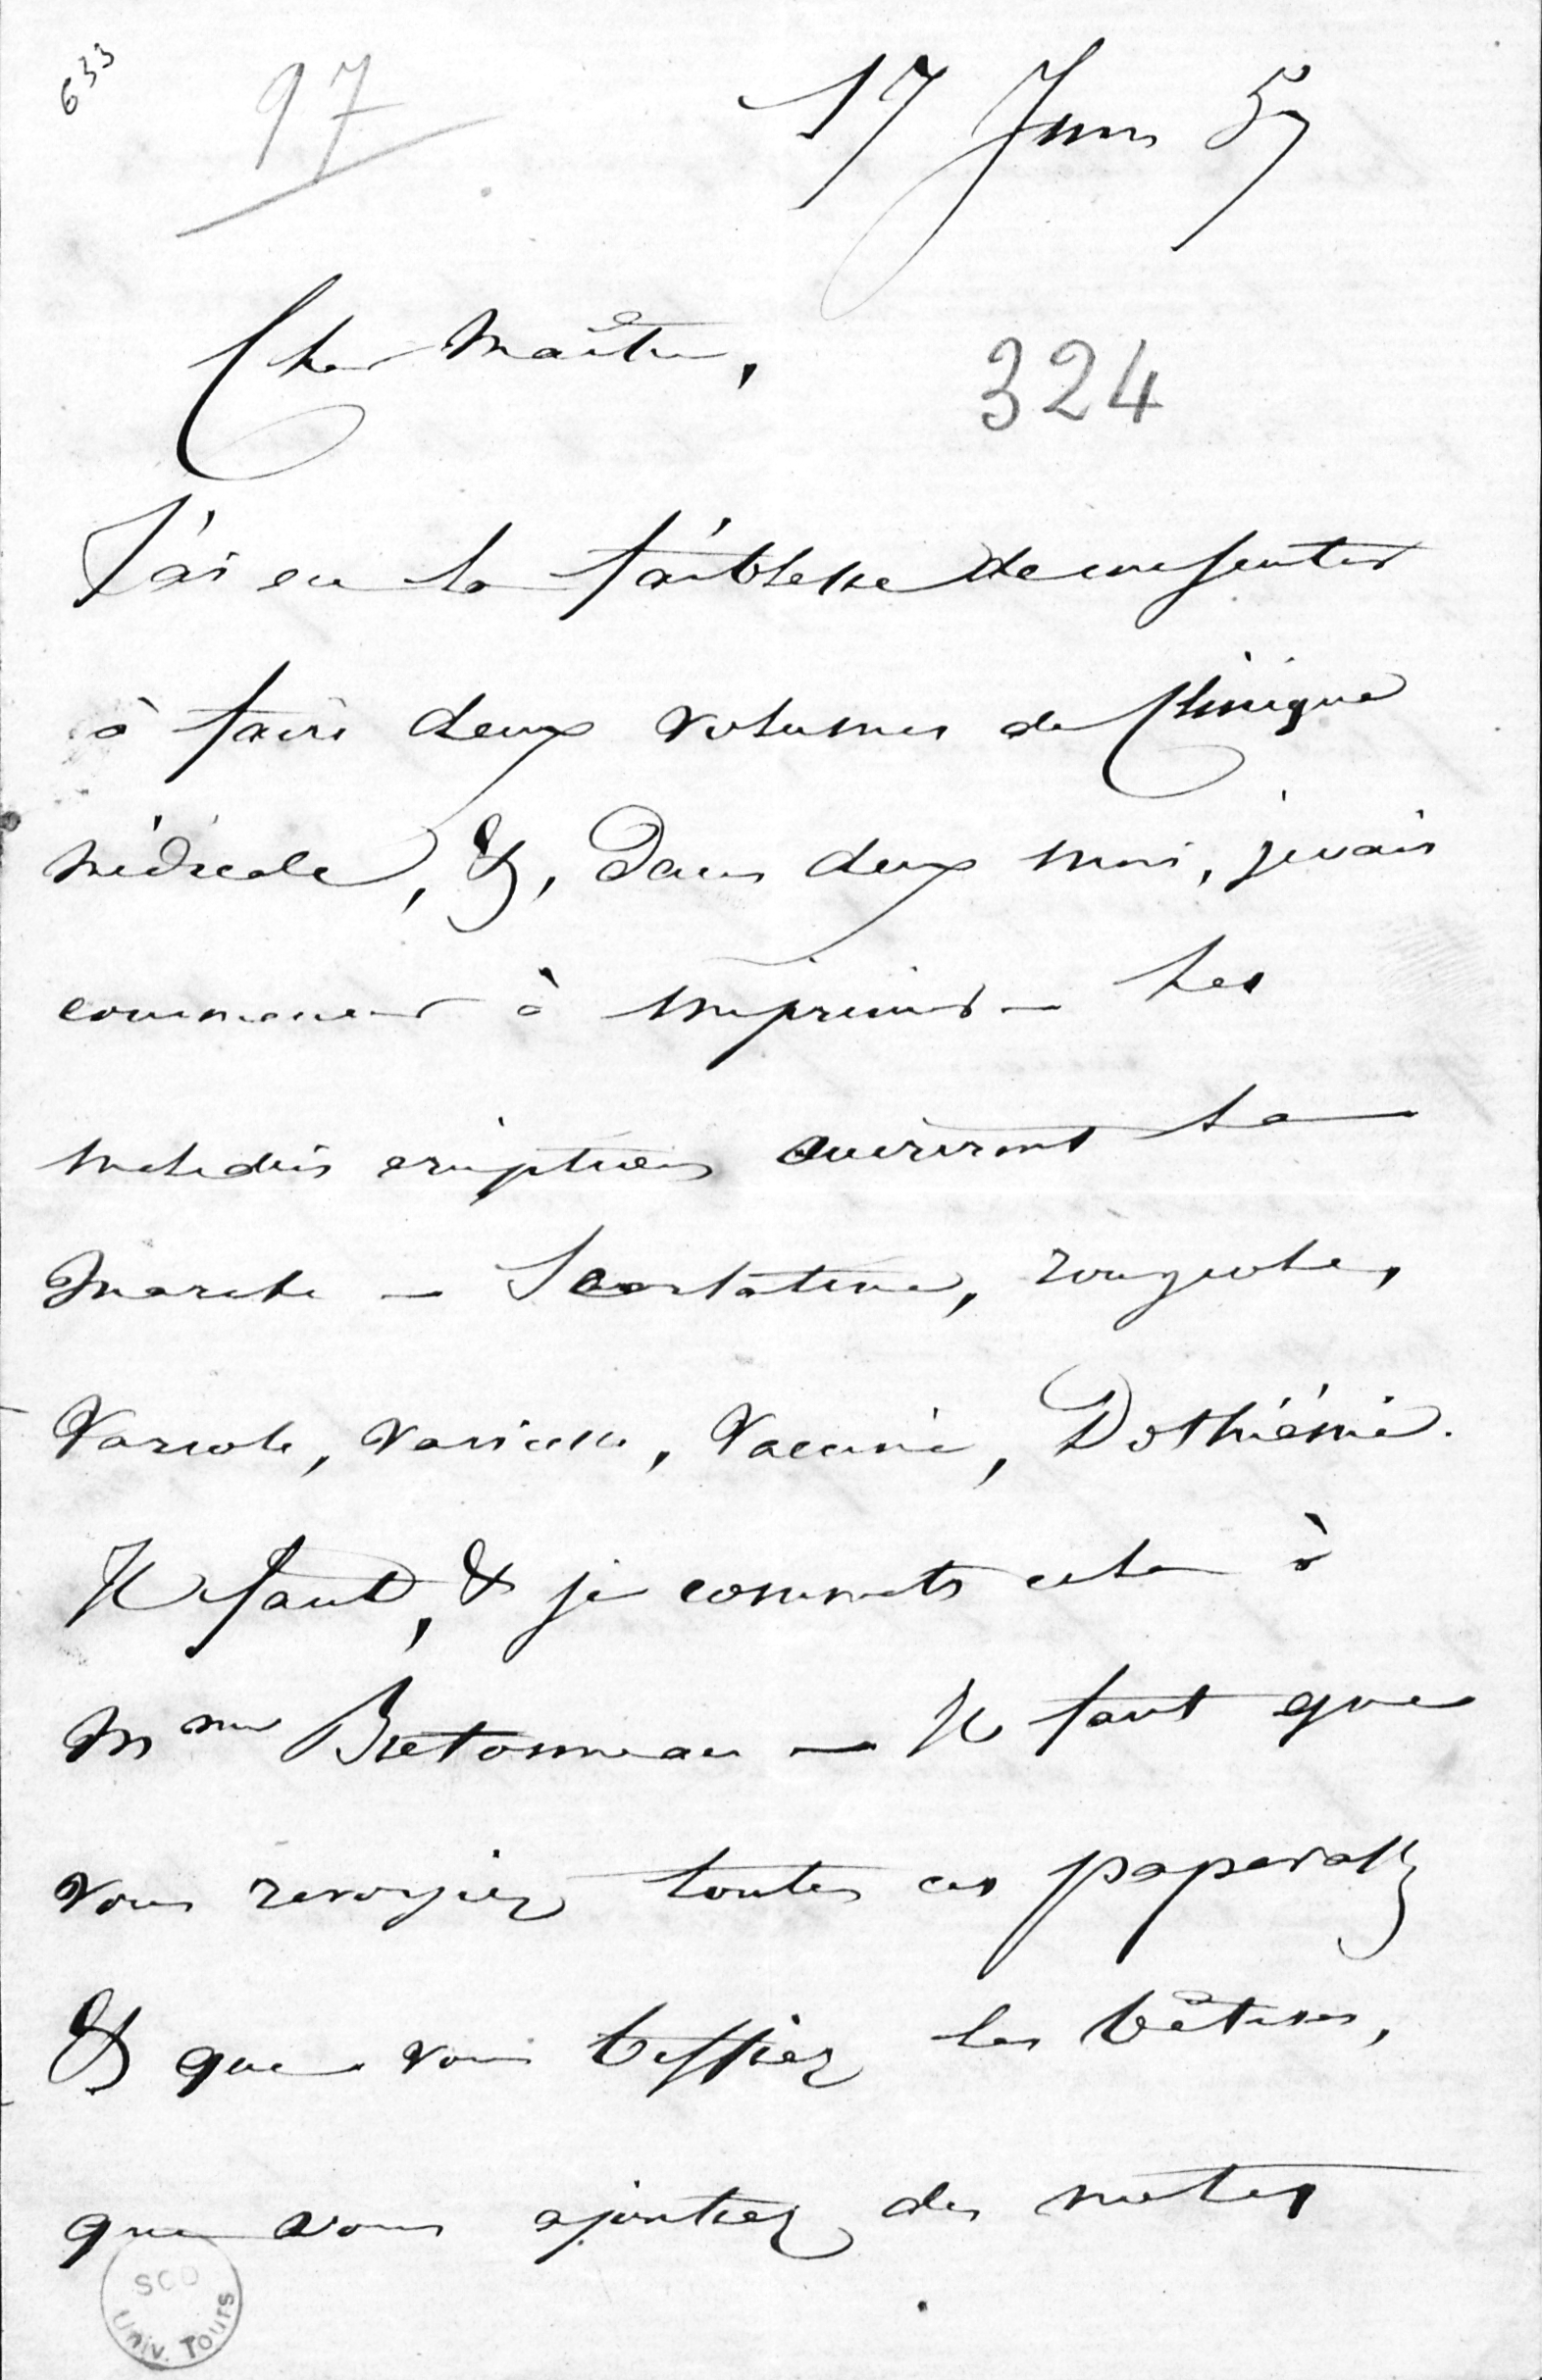 633
97
17 Juin 57
Cher Maître,
324
J'ai eu la faiblesse de consentir
à faire deux volumes de Clinique
médicale, &, dans deux mois, je vais
commencer à imprimer — Les
maladies éruptives ouvriront la
marche — Scarlatine, rougeole,
Variole, varicelle, Vaccine, Dothiénie.
Il faut, & je commets cela à
Mme Bretonneau — Il faut que
vous revoyiez toutes ces paperasses
& que vous biffiez les bêtises,
que vous ajoutiez des notes
SCD
Univ. Tours